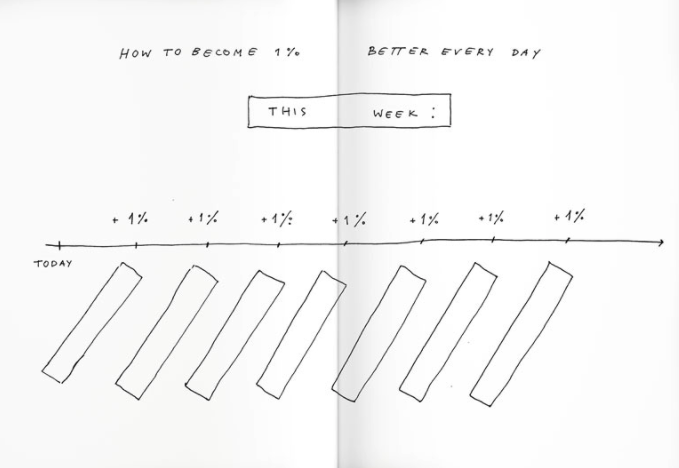 HOW TO BECOME 1% BETTER EVERY DAY
THIS WEEK:
+1% +1% +1% +1% +1% +1% +1%
TODAY